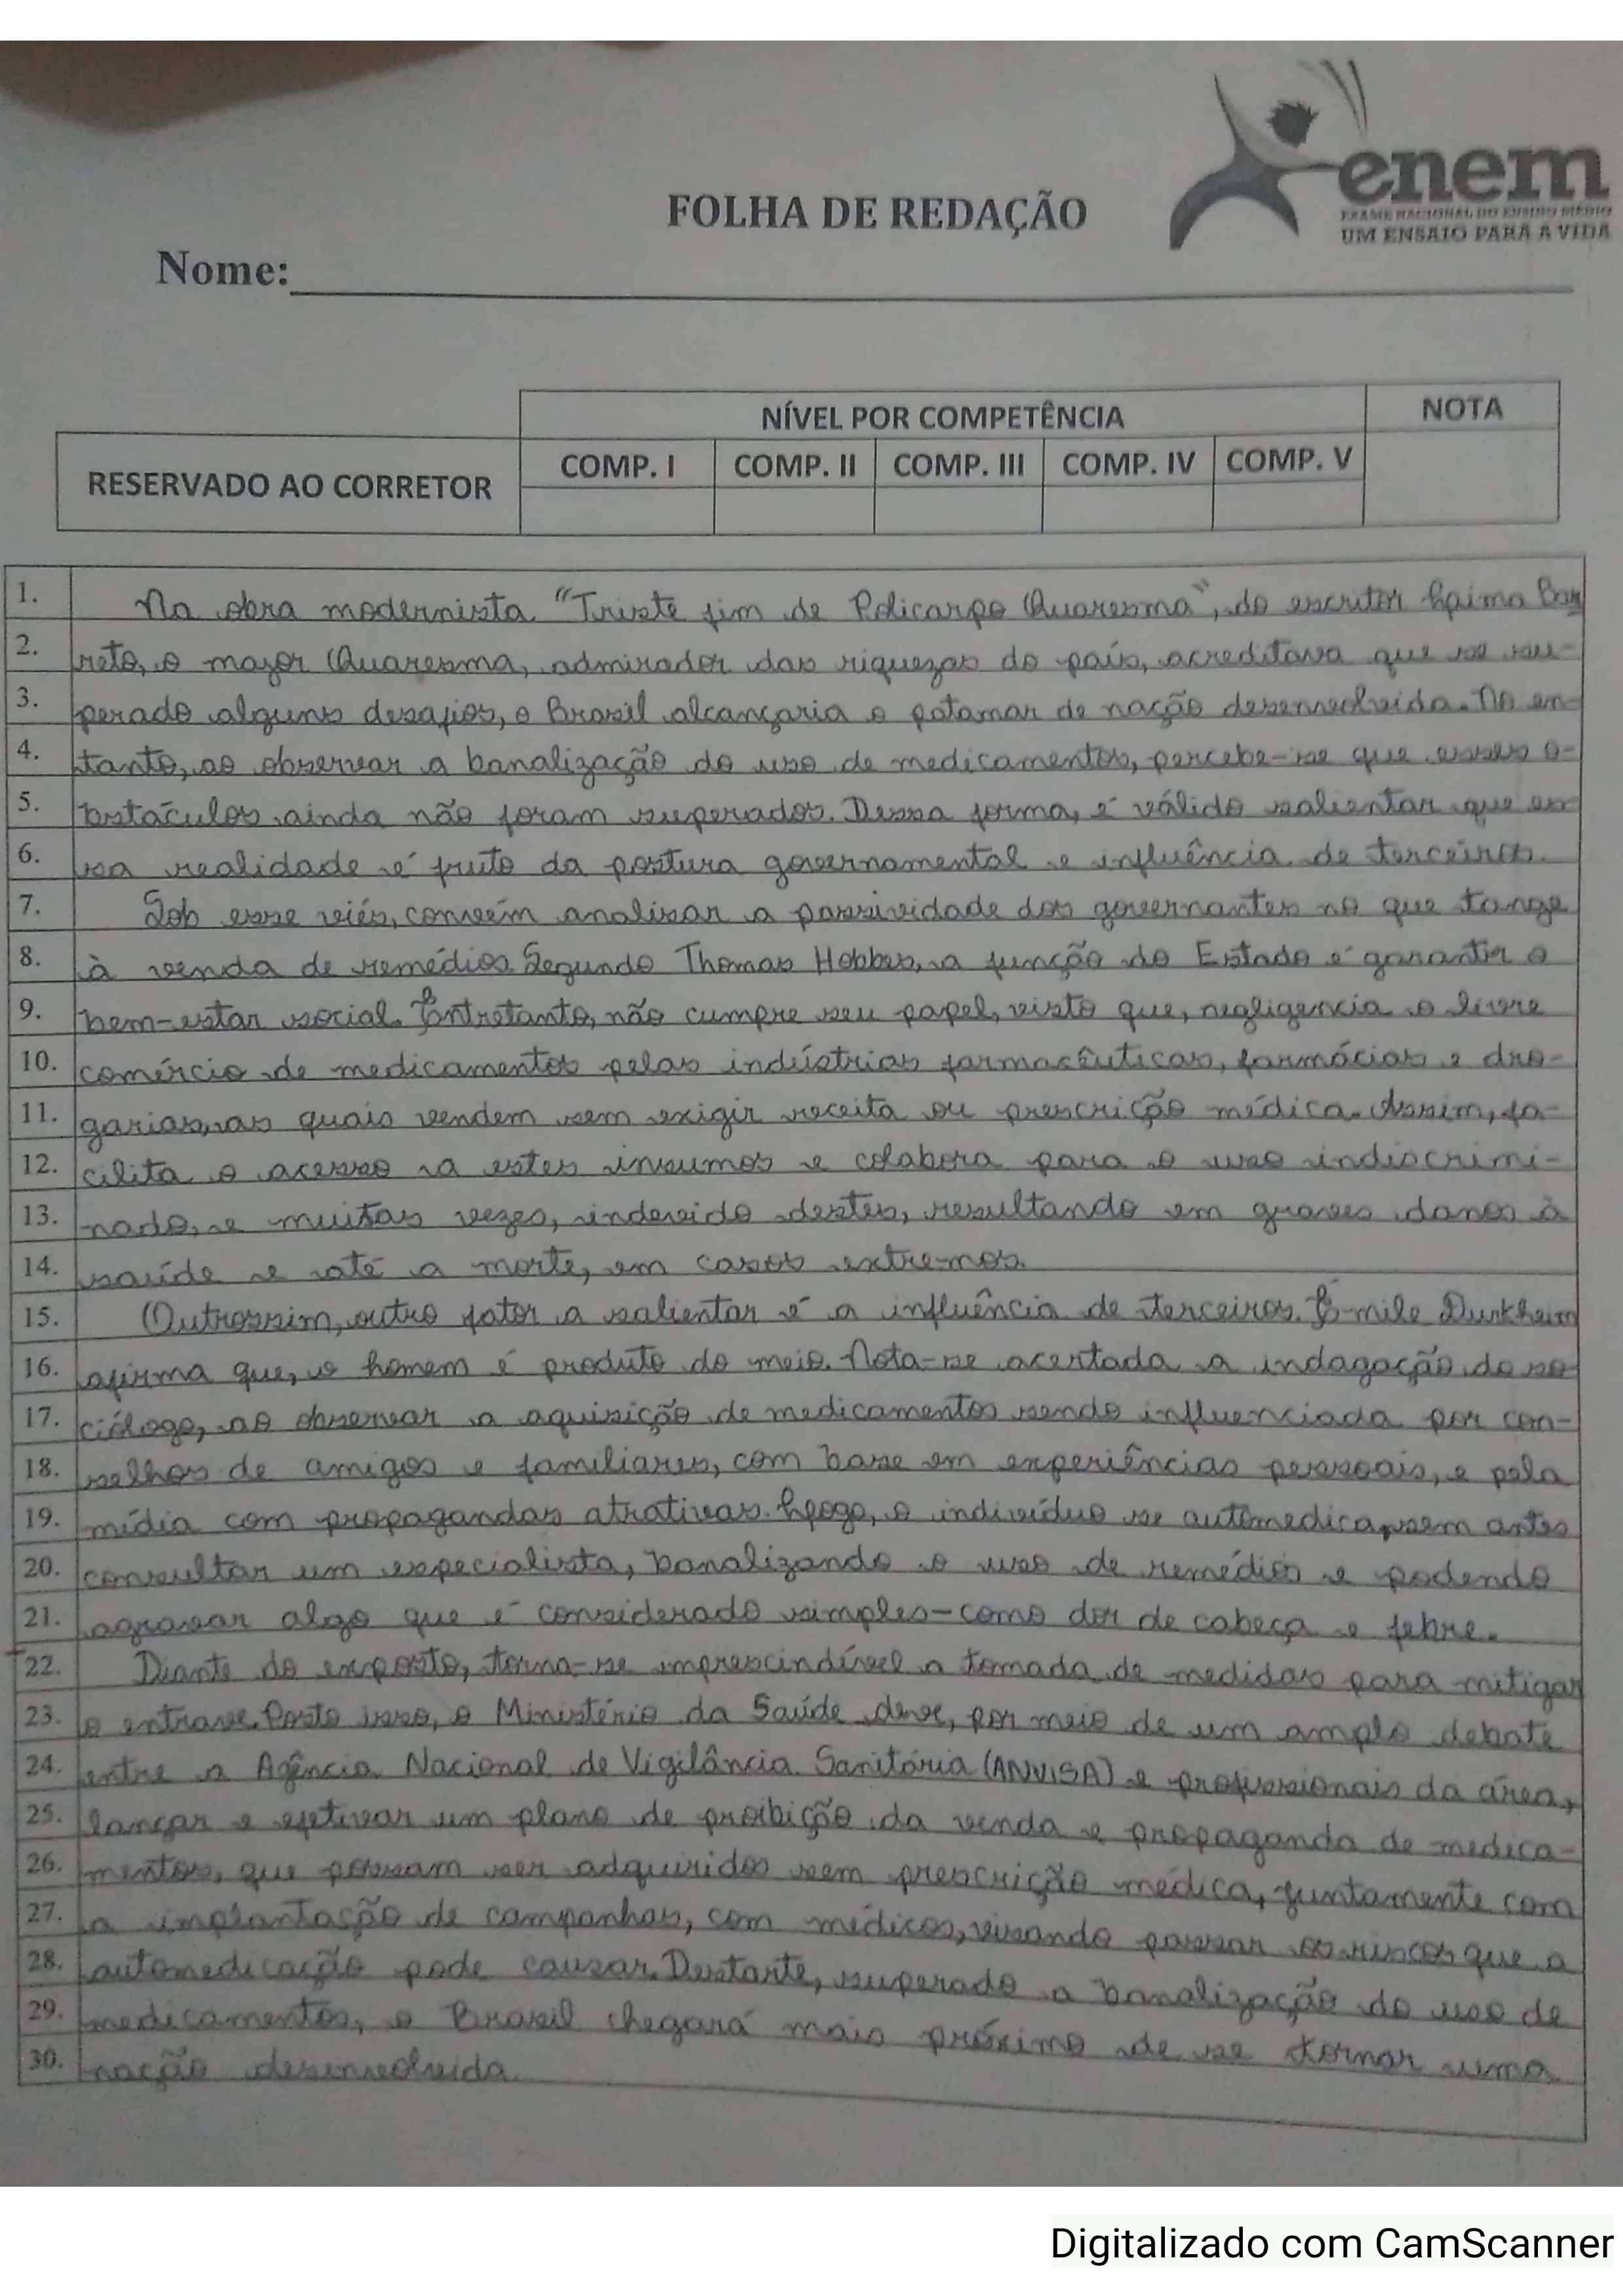 enem
EXAME NACIONAL DO ENSINO MÉDIO
UM ENSAIO PARA A VIDA
FOLHA DE REDAÇÃO
Nome:
RESERVADO AO CORRETOR
NÍVEL POR COMPETÊNCIA
NOTA
COMP. I COMP. II COMP. III COMP. IV COMP. V
1. Na obra modernista "Triste fim de Policarpo Quaresma", do escritor Lima Bar
2. reto, o major Quaresma, admirador das riquezas do país, acreditava que se su-
3. perado alguns desafios, o Brasil alcançaria o patamar de nação desenvolvida. No en-
4. tanto, ao observar a banalização do uso de medicamentos, percebe-se que esses o-
5. bstáculos ainda não foram superados. Dessa forma, é válido salientar que es-
6. sa realidade é fruto da postura governamental e influência de terceiros.
7. Sob esse viés, convém analisar a passividade dos governantes no que tange
8. à venda de remédios. Segundo Thomas Hobbes, a função do Estado é garantir o
9. bem-estar social. Entretanto, não cumpre seu papel, visto que, negligencia o livre
10. comércio de medicamentos pelas indústrias farmacêuticas, farmácias e dro-
11. garias, as quais vendem sem exigir receita ou prescrição médica. Assim, fa-
12. cilita o acesso a estes insumos e colabora para o uso indiscrimi-
13. nado, e muitas vezes, indevido destes, resultando em graves danos à
14. saúde e até a morte, em casos extremos.
15. Outrossim, outro fator a salientar é a influência de terceiros. Émile Durkheim
16. afirma que, o homem é produto do meio. Nota-se acertada a indagação do so-
17. ciólogo, ao observar a aquisição de medicamentos sendo influenciada por con-
18. selhos de amigos e familiares, com base em experiências pessoais, e pela
19. mídia com propagandas atrativas. Logo, o indivíduo se automedica, sem antes
20. consultar um especialista, banalizando o uso de remédios e podendo
21. agravar algo que é considerado simples - como dor de cabeça e febre.
22. Diante do exposto, torna-se imprescindível a tomada de medidas para mitigar
23. o entrave. Posto isso, o Ministério da Saúde deve, por meio de um amplo debate
24. entre a Agência Nacional de Vigilância Sanitária (ANVISA) e profissionais da área,
25. lançar e efetivar um plano de proibição da venda e propaganda de medica-
26. mentos, que possam ser adquiridos sem prescrição médica, juntamente com
27. a implantação de campanhas, com médicos, visando passar os riscos que a
28. automedicação pode causar. Destarte, superado a banalização do uso de
29. medicamentos, o Brasil chegará mais próximo de se tornar uma
30. nação desenvolvida.
Digitalizado com CamScanner